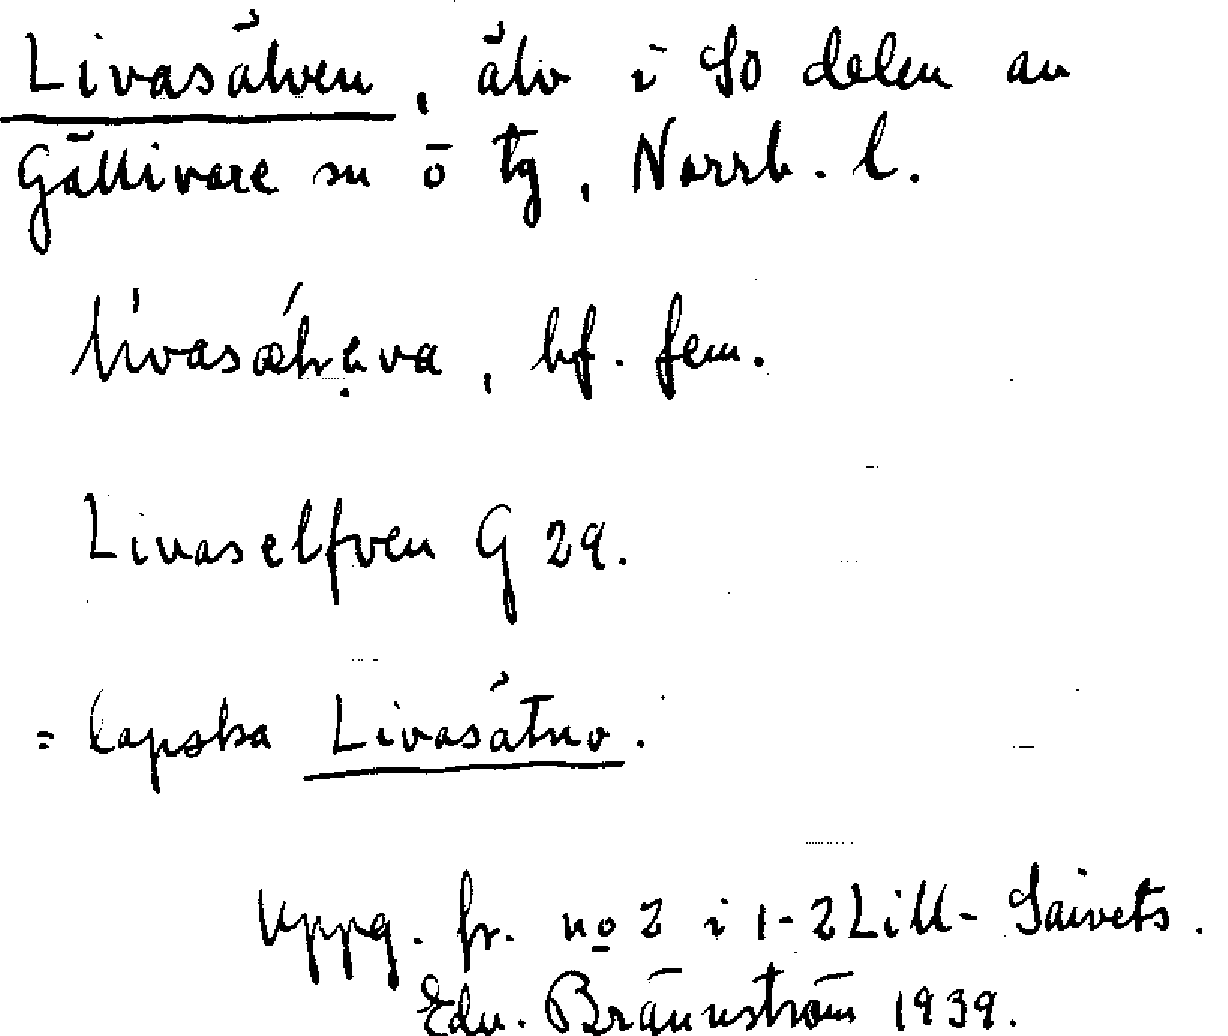 Livasälven, älv i SO delen av
Gällivare sn o tg, Norrb. l.
lìvasæ̀lva, bf. fem.
Livaselfven G 29.
= lapska Livasätno.
Uppg. fr. no 2 i 1-2 Lill-Saivets.
Edv. Brännström 1939.